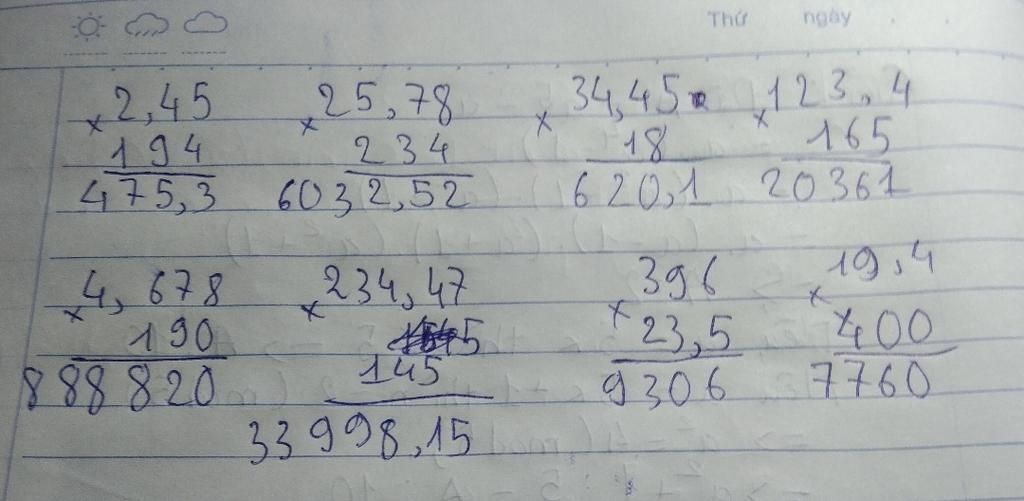 Thứ ngày . .
× 2,45 × 25,78 × 34,45 × 123,4
194 234 18 165
475,3 6032,52 620,1 20361
× 4,678 × 234,47 × 396 × 19,4
190 23,5 400
145
888820 9306 7760
33998,15